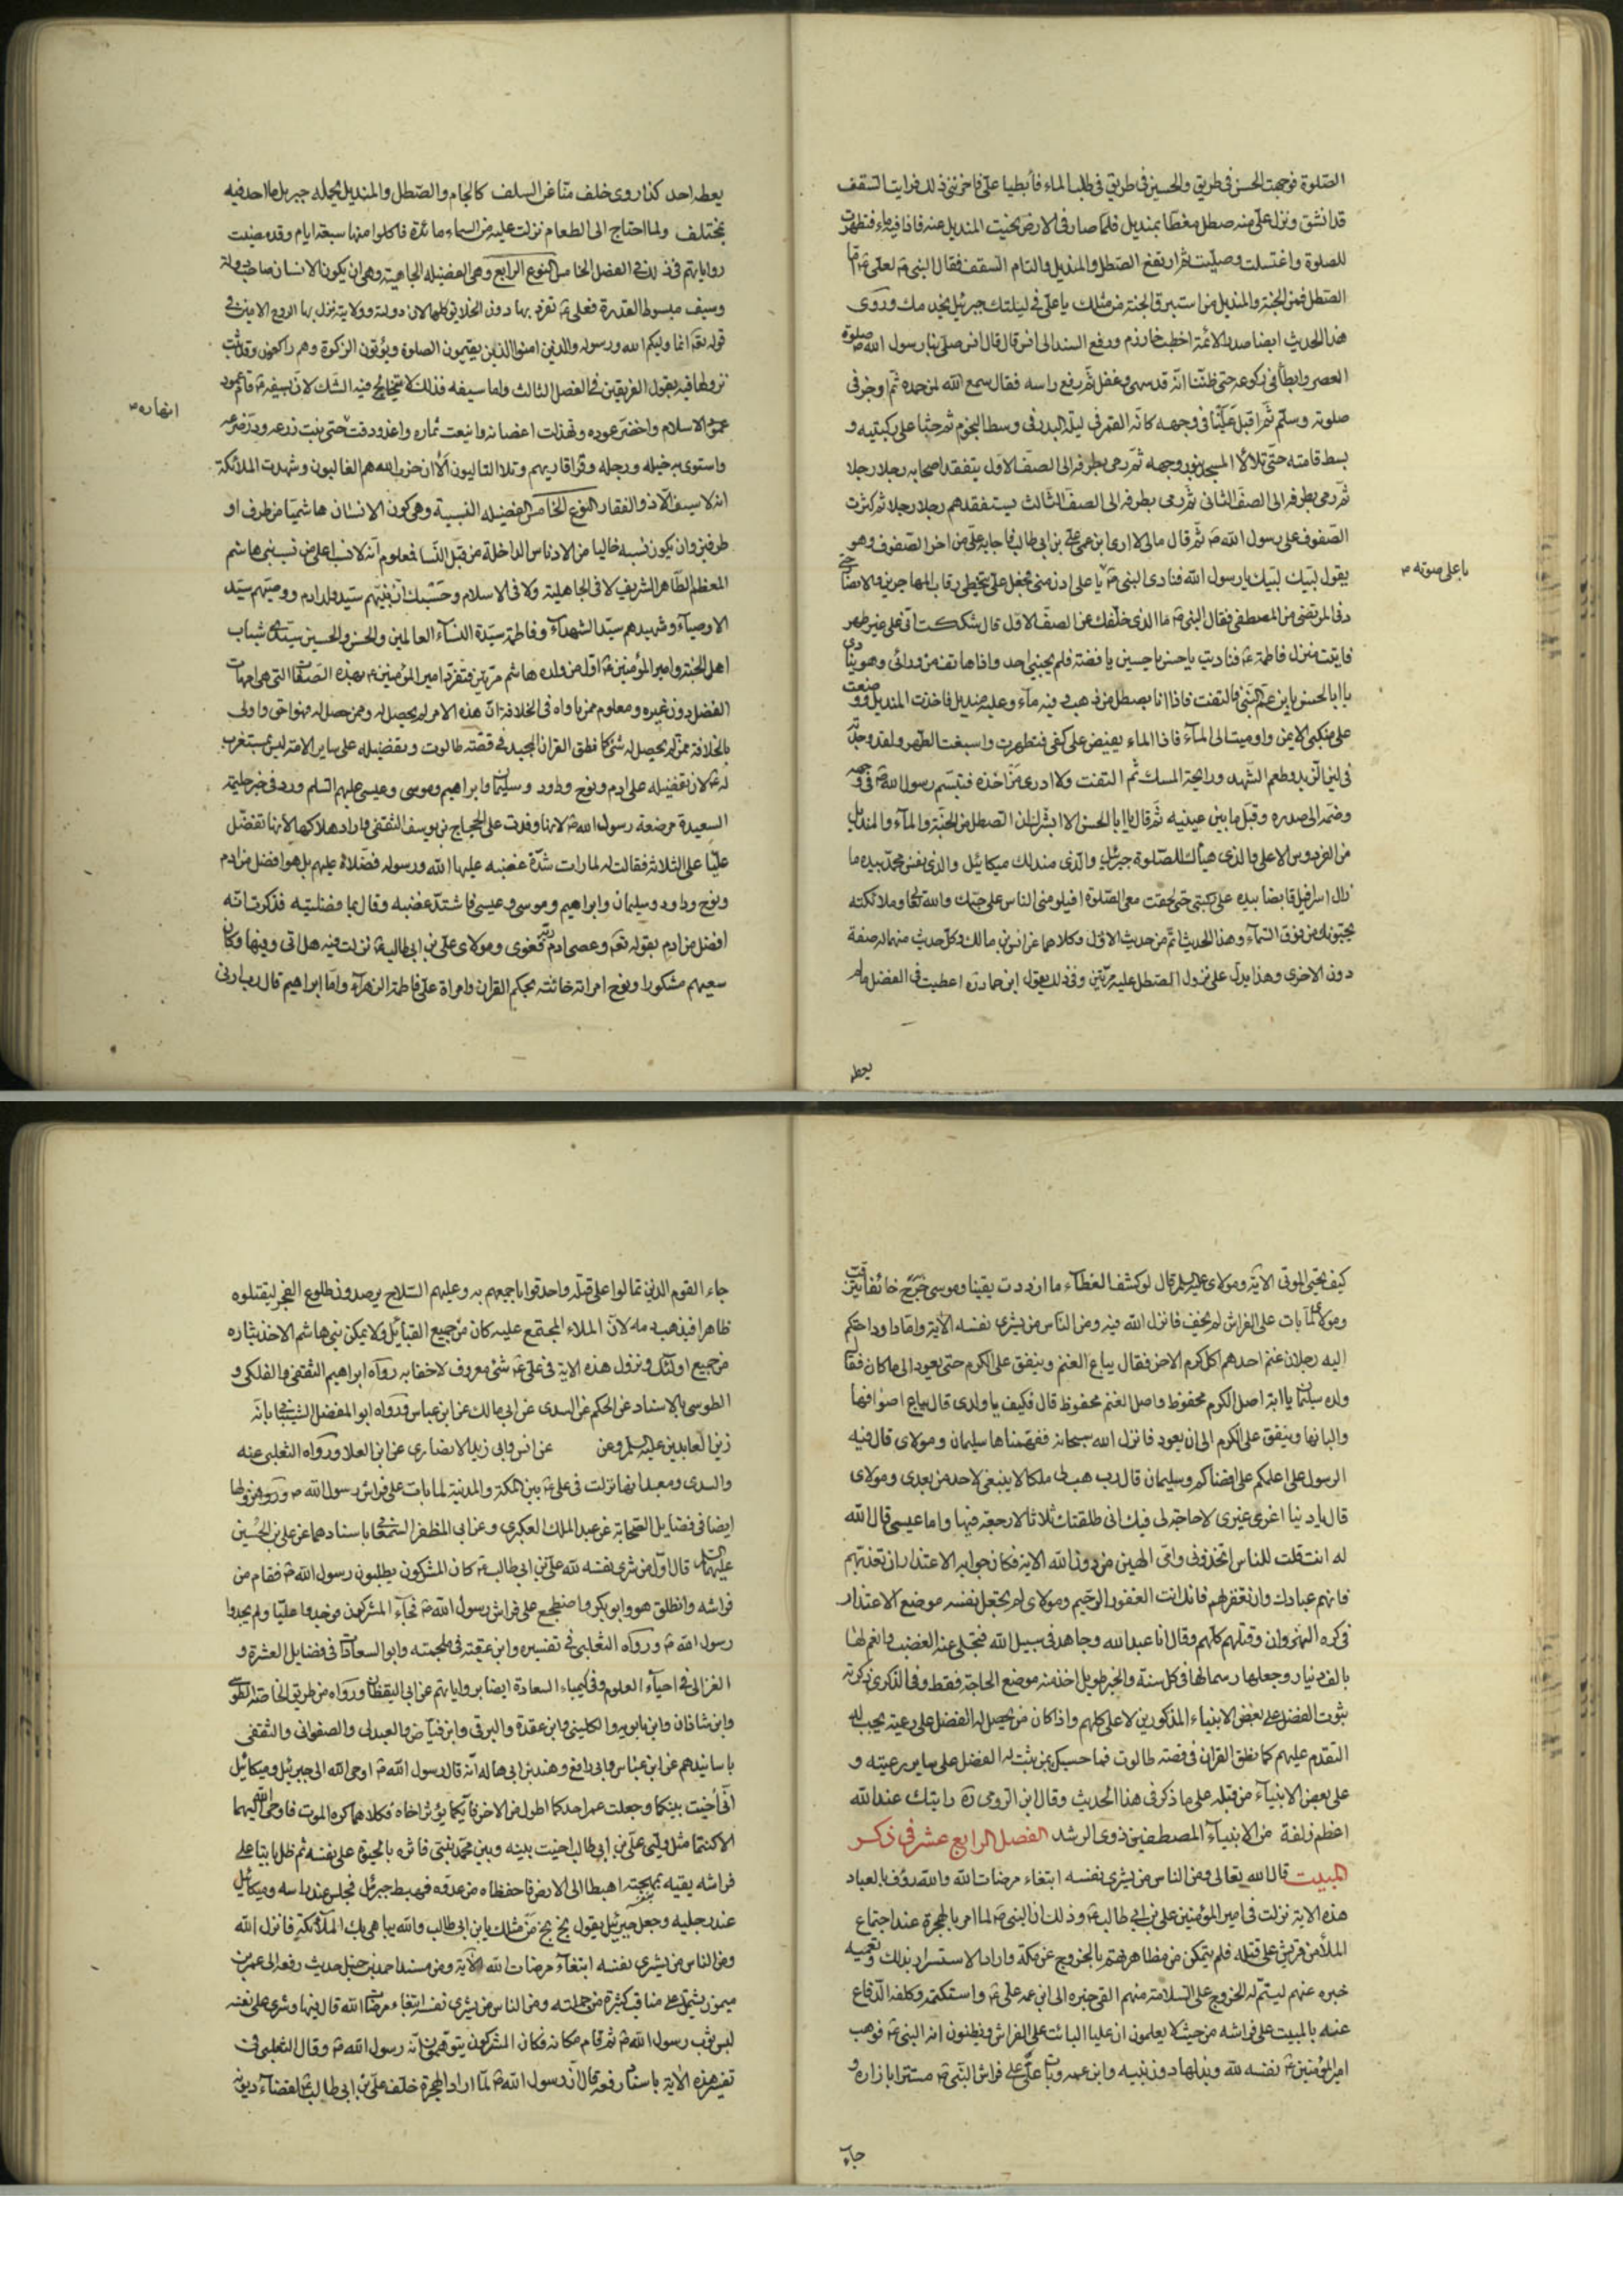 الصلوة فوجهت الحسن فى طريق والحسين فى طريق فى طلب الماء فأبطيا علىّ فاحزننى ذلك فرايت السقف
قد انشق ونزل علىّ منه صطل مغطّا بمنديل فلما صار فى الارض نحيت المنديل عنه فاذا فيه ماء فتطهرت
للصلوة واغتسلت وصلّيت ثم ارتفع الصّطل والمنديل والتام السقف فقال النبى لعلى امّا
الصّطل فمن الجنة والمنديل من استبرق الجنة من مثلك يا على فى ليلتك جبرئيل يخدمك وروى
هذا الحديث ايضا صدر الائمة اخطب خوارزم ورفع السند الى انس قال قال انس صلى بنا رسول الله صلوة
العصر وابطأ فى ركوعه حتى ظننّا انّه قد سهى وغفل ثم رفع راسه فقال سمع الله لمن حمده ثم اوجز فى
صلوته وسلّم ثم اقبل علينا فى وجهه كانّه القمر فى ليلة البدر فى وسط النجوم ثم جثا على ركبتيه و
بسط قامته حتّى تلالأ المسجد بنور وجهه ثم رمى بطرفه الى الصفّ الاوّل يتفقد اصحابه رجلا رجلا
ثم رمى بطرفه الى الصفّ الثانى ثم رمى بطرفه الى الصفّ الثالث يستفقدهم رجلا رجلا ثم كثرت
الصّفوف على رسول الله ثم قال مالى لا ارى ابن عمى على بن ابى طالب فاجابه علىّ من اخر الصّفوف وهو
يقول لبّيك لبّيك يا رسول الله فنادى النبى يا على ادن منى فجعل علىّ يتخطى رقاب المهاجرين والانصار حتى
باعلى صوته
دنى المرتضى من المصطفى فقال النبى ما الذى خلّفك عن الصفّ الاوّل قال شككت انى على غير طهر
فاتيت منزل فاطمة فناديت يا حسن يا حسين يا فضّة فلم يجبنى احد واذا هاتف من ورائى وهو ينادى
يا ابا الحسن يا بن عمّ النّبىّ التفت فالتفت فاذا انا بصطل من ذهب فيه ماء وعليه منديل فاخذت المنديل ووضعته
على منكبى الايمن واوميت الى المآء فاذا الماء يفيض على كفى فتطهرت واسبغت الطهر ولقد وجدته
فى لين الزبد وطعم الشّهد ورايحة المسك ثم التفت ولا ادرى من اخذه فتبسّم رسول الله فى وجهه
وضمّه الى صدره وقبّل ما بين عينيه ثم قال يا ابا الحسن الا ابشّرك ان الصطل من الجنّة والمآء والمنديل
من الفردوس الاعلى والذى هيّأك للصّلوة جبرئيل والذى مندلك ميكائيل والذى نفس محمّد بيده ما
زال اسرافيل قابضا بيده على ركبتى حتى لحقت معى الصّلوة افيلومنى الناس على حبّك والله تعالى وملائكته
يحبّونك من فوق السّمآء وهذا الحديث اتمّ من حديث الاوّل وكلاهما عن انس بن مالك وكل حديث منهما له صفة
دون الاخرى وهذا يدل على نزول الصّطل عليه مرّتين وفى ذلك يقول ابن حماد اعطيت فى الفضل ما لم
يعطه
يعطه احد كذا روى خلف منّا عن السلف كالجام والصّطل والمنديل يحمله جبريل ما احد فيه
بمختلف ولما احتاج الى الطعام نزلت عليه من السماء مائدة فاكلوا منها سبعة ايام وقد مضت
رواياتهم فى ذلك فى الفصل الخامس النوع الرابع وهى الفضيلة الخارجية وهى ان يكون الانسان صاحب دولة
وسيف مبسوط القدرة فعلى تفرّد بها دون الخلايق كلها لان دولته وولايته نزل بها الروح الامين فى
قوله انما وليكم الله ورسوله والذين امنوا الذين يقيمون الصلوة ويؤتون الزكوة وهم راكعون وقد ثبت
نزولها فيه بقول الفريقين فى الفصل الثالث واما سيفه فذلك لا يتخالج فيه الشّك لانّ بسيفه قام عمود
عمود الاسلام واخضرّ عوده وتهدّلت اغصانه واينعت ثماره واغدودقت حتى نبت زرعه ودرّ ضرعه
انهاره
واستوى بخيله ورجله وقرا قاريهم وتلا التاليون الا ان حزب الله هم الغالبون وشهدت الملائكة
انه لا سيف الّا ذو الفقار النوع الخامس الفضيلة النسبية وهى كون الانسان هاشميّا من طرف او
طرفين وان يكون نسبه خاليا من الادناس الداخلة من قبل النّسا فمعلوم انه لا نسب اعلى من نسب بنى هاشم
المعظم الطّاهر الشريف لا فى الجاهلية ولا فى الاسلام وحسبك انّ نبيّهم سيّد ولد ادم ووصيّهم سيّد
الاوصيآء وشهيدهم سيّد الشهدآء وفاطمة سيّدة النسآء العالمين والحسن والحسين سيّدى شباب
اهل الجنّة وامير المؤمنين اوّل من ولده هاشم مرتين فتفرّد امير المؤمنين بهذه الصّفات التى هى امهات
الفضل دون غيره ومعلوم ممن ياواه فى الخلافة انّ هذه الامر لم يحصل له ومن حصل له فهو احق واولى
بالخلافة ممن لم يحصل له شئ كما نطق القران المجيد فى قصّة طالوت وتفضيله على ساير الامة ليس بمستغرب
له لان تفضيله على ادم ونوح وداود وسليمان وابراهيم وموسى وعيسى عليهم السّلم ورد فى خبر حليمة
السعيدة مرضعة رسول الله لانها وفدت على الحجاج بن يوسف الثقفى فاراد هلاكها لانها تفضّل
عليّا على الثلاثة فقالت له لما رات شدّة غضبه عليها الله ورسوله فضّلاه عليهم بل هو افضل من ادم
ونوح وداود وسليمان وابراهيم وموسى وعيسى فاشتدّ غضبه وقال بما فضلتيه فذكرت انّه
افضل من ادم بقوله وعصى ادم ربّه فغوى ومولاى على بن ابى طالب نزلت فيه هل اتى وفيها وكان
سعيهم مشكورا ونوح امراته خائنة بمحكم القران وامراة علىّ فاطمة الزهرآء وامّا ابراهيم قال رب ارنى
كيف تحيى الموتى الآية ومولاى عليه السلم قال لو كشف الغطآء ما ازددت يقينا وموسى خرج خائفا يترقب
ومولاى لما بات على الفراش لم يخف فانزل الله فيه ومن النّاس من يشرى نفسه الآية وامّا داود احتكم
اليه رجلان غنم احدهم اكل كرم الاخر فقال يباع الغنم وينفق على الكرم حتى يعود الى ما كان فقال
ولده سليمان يا ابة اصل الكرم محفوظ واصل الغنم محفوظ قال فكيف يا ولدى قال يباع اصوافها
والبانها وينفق على الكرم الى ان يعود فانزل الله سبحانه ففهّمناها سليمان ومولاى قال فيه
الرسول علىّ اعلمكم علىّ اقضاكم وسليمان قال رب هب لى ملكا لا ينبغى لاحد من بعدى ومولاى
قال يا دنيا اغرى غيرى لا حاجة لى فيك انى طلقتك ثلاثا لا رجعة فيها واما عيسى قال الله
له انت قلت للناس اتخذونى وامّى الهين من دون الله الاية فكان جوابه الاعتذار ان تعذبهم
فانهم عبادك وان تغفر لهم فانك انت الغفور الرّحيم ومولاى لم يجعل نفسه موضع الاعتذار
فى كره النهروان وقتلهم كلّهم وقال انا عبد الله وجاهد فى سبيل الله فتجلى عنه الغضب وانعم لها
بالف دينار وجعلها رسما لها فى كل سنة والخبر طويل اخذ منه موضع الحاجة فقط وفى الذى ذكرته
ثبوت الفضل على بعض الانبياء المذكورين لا على كلهم واذا كان من يحصل له الفضل على رعيته يجب له
التقدم عليهم كما نطق القران فى قصة طالوت فما حسبك بمن ثبت له الفضل على ساير رعيته و
على بعض الانبيآء من قبله على ما ذكر فى هذا الحديث وقال ابن الرومى رايتك عند الله
اعظم زلفة من الانبيآء المصطفين ذوى الرشد الفصل الرابع عشر فى ذكر
المبيت قال الله تعالى ومن الناس من يشرى نفسه ابتغاء مرضات الله والله رؤف بالعباد
هذه الاية نزلت فى امير المؤمنين على بن ابى طالب وذلك ان النبى لما امر بالهجرة عند اجتماع
الملأ من قريش على قتله فلم يتمكن من مظاهرتهم بالخروج عن مكة واراد الاستسرار بذلك وتعميه
خبره عنهم ليتمّ له الخروج على السّلامة منهم القى خبره الى ابن عمه على واستكتمه وكلفه الدّفاع
عنه بالمبيت على فراشه من حيث لا يعلمون ان عليا البائت على الفراش ويظنون انه النبى فوهب
امير المؤمنين نفسه لله وبذلها دون نبيه وابن عمه وبات علىّ على فراش النّبى مستترا بازاره و
جآء
جاء القوم الذين تمالوا على قتله واحدقوا باجمعهم به وعليهم السّلاح يرصدون طلوع الفجر ليقتلوه
ظاهرا فيذهب دمه لانّ الملاء المجتمع عليه كان من جميع القبائل ولا يمكن بنى هاشم الاخذ بثاره
من جميع اولئك ونزول هذه الاية فى على شئ معروف لا خفا به رواه ابراهيم الثقفى والفلكى و
الطوسى بالاسناد عن الحكم عن السدى عن ابى مالك عن ابن عباس ورواه ابو المفضل الشيبانى باسناده
زين العابدين عليه السلم وعن عن انس وابى زيد الانصارى عن ابن العلا ورواه الثعلبى عنه
والسدى ومعبد انها نزلت فى على بين المكة والمدنية لما بات على فراش رسول الله ورووا نزولها
ايضا فى فضايل الصّحابة عن عبد الملك العكبرى وعن ابى المظفر السّمعانى باسنادهما عن على بن الحسين
عليهما السلم قال اوّل من شرى نفسه لله على بن ابى طالب كان المشركون يطلبون رسول الله فقام من
فراشه وانطلق هو وابو بكر واضطجع على فراش رسول الله فجآء المشركون فوجدوا عليّا ولم يجدوا
رسول الله ورواه الثعلبى فى تفسيره وابن عقبة فى ملحمته وابو السعادات فى فضايل العشرة و
الغزالى فى احيآء العلوم وفى كيمياء السعادة ايضا برواياتهم عن ابى اليقظان ورواه من طريق الخاصّة الطوسى
وابن شاذان وابن بابويه والكلينى وابن عقدة والبرقى وابن فيّاض والعبدلى والصفوانى والثقفى
باسانيدهم عن ابن عبّاس وابى رافع وهند بن ابى هاله انه قال رسول الله اوحى الله الى جبرئيل وميكائيل
انّى اخيت بينكما وجعلت عمر احدكما اطول من الاخر فايّكما يؤثر اخاه فكلاهما كره الموت فاوحى الله اليهما
الا كنتما مثل وليّى علىّ بن ابى طالب اخيت بينه وبين محمّد نبيّى فاثره بالحيوة على نفسه ثم ظل بايتا على
فراشه يقيه بمهجته اهبطا الى الارض فاحفظاه من عدوّه فهبط جبرئيل فجلس عند راسه وميكائيل
عند رجليه وجعل جبرئيل يقول بخ بخ من مثلك يا بن ابى طالب والله يباهى بك الملآئكة فانزل الله
ومن الناس من يشرى نفسه ابتغآء مرضات الله الاية ومن مسند احمد بن حنبل حديث رفعه الى عمر بن
ميمون يشتمل على مناقب كثيرة من جملته ومن الناس من يشرى نفسه ابتغاء مرضات الله قال فيها وشرى على نفسه
لبس ثوب رسول الله ثم قام مكانه فكان المشركون يتوهمون انّه رسول الله وقال الثعلبى فى
تفسير هذه الاية باسناد رفعه قال انّ رسول الله لمّا اراد الهجرة خلّف علىّ بن ابى طالب لقضاء ديونه